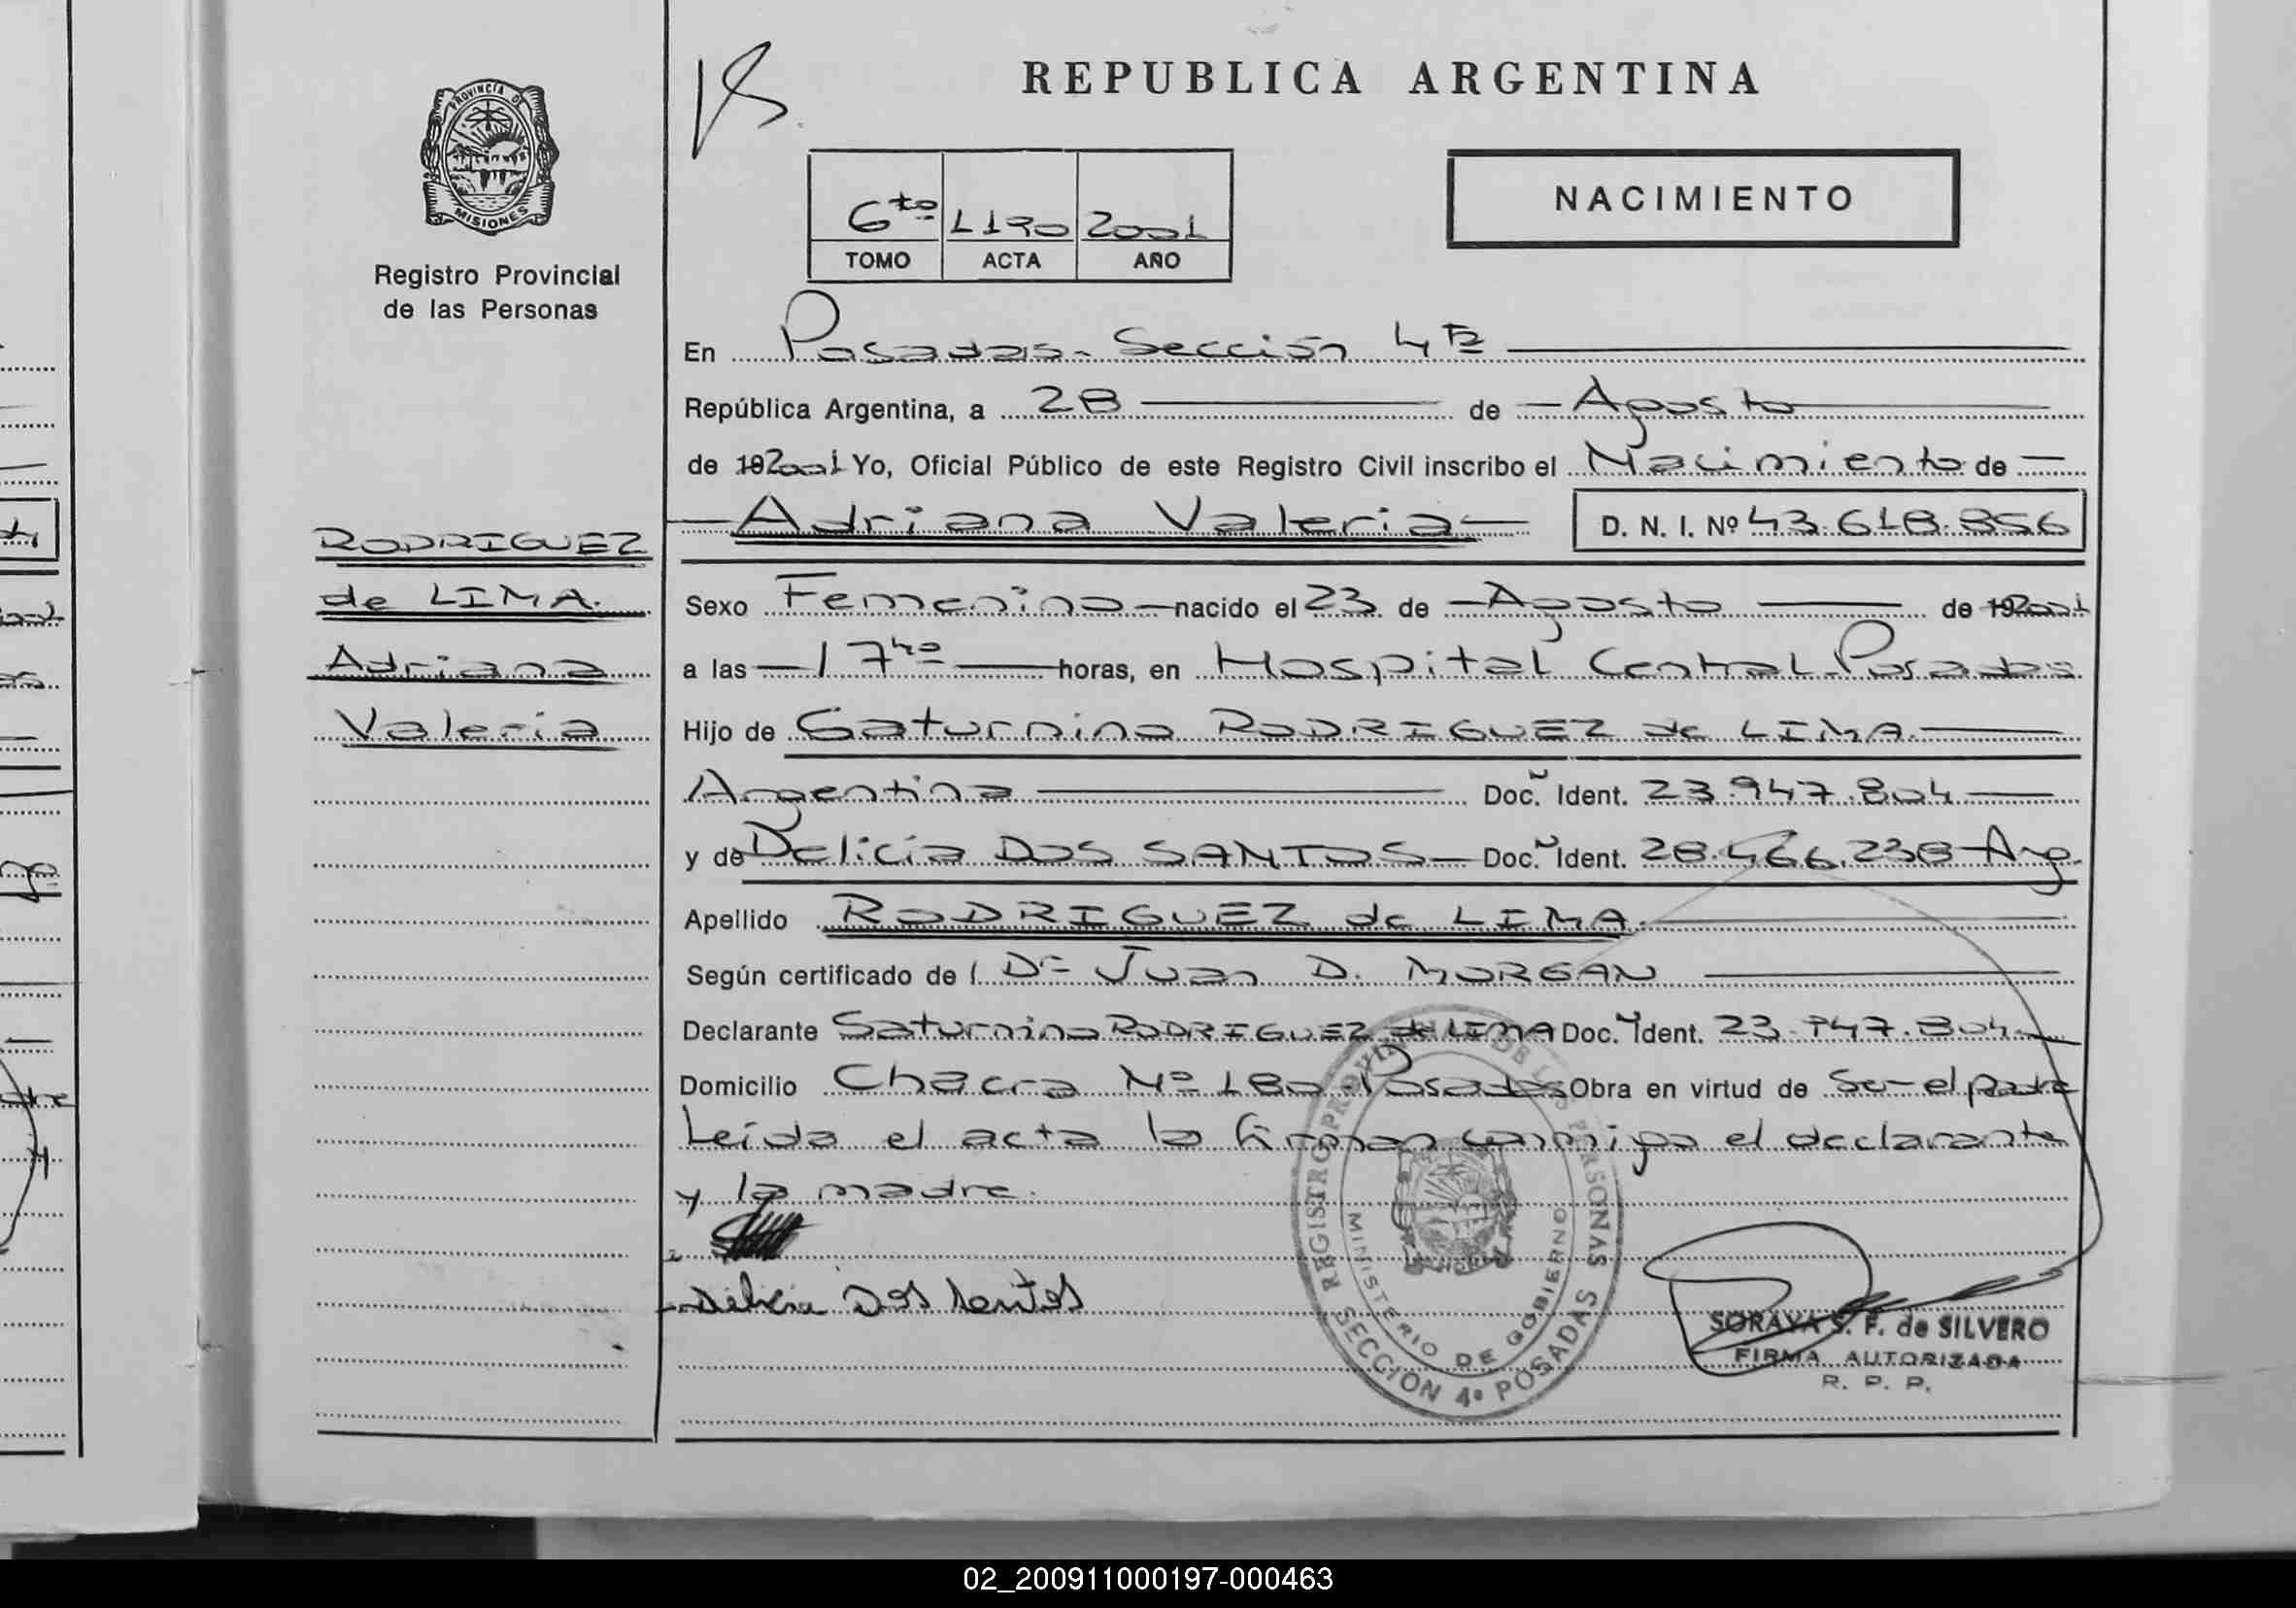 PROVINCIA DE
MISIONES
Registro Provincial
de las Personas
RODRIGUEZ
de LIMA.
Adriana
Valeria
REPUBLICA ARGENTINA
NACIMIENTO
6to L190 2001
TOMO ACTA AÑO
En Posadas - Sección 4ta
República Argentina, a 28 de Agosto
de 192001 Yo, Oficial Público de este Registro Civil inscribo el Nacimiento de
Adriana Valeria D. N. I. Nº 43.618.856
Sexo Femenino nacido el 23 de Agosto de 192001
a las 17 40 horas, en Hospital Central Posadas
Hijo de Saturnino RODRIGUEZ de LIMA.
Argentina Doc. Ident. 23.947.804
y de Delicia DOS SANTOS Doc. Ident. 28.466.238 Arg.
Apellido RODRIGUEZ de LIMA.
Según certificado de l Dr Juan D. MORGAN
Declarante Saturnino RODRIGUEZ de LIMA Doc. Ident. 23.947.804
Domicilio Chacra Nº 180 - Posadas Obra en virtud de Ser el padre
Leída el acta la firman conmigo el declarante
y la madre.
Delicia Dos Santos
REGISTRO PROVINCIAL DE LAS PERSONAS
MINISTERIO DE GOBIERNO
SECCION 4ª POSADAS
SORAYA S. F. de SILVERO
FIRMA AUTORIZADA
R. P. P.
02_200911000197-000463